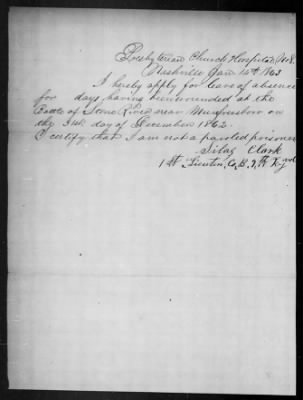 Presbyterian Church Hospital No 8
Nashville Jan 14th 1863
I hereby apply for leave of absence
for days, having been wounded at the
Battle of Stone River near Murfreesboro on
the 31st day of December 1862.
I certify that I am not a paroled prisoner
Silas Clark
1st Lieuten, Co, B,